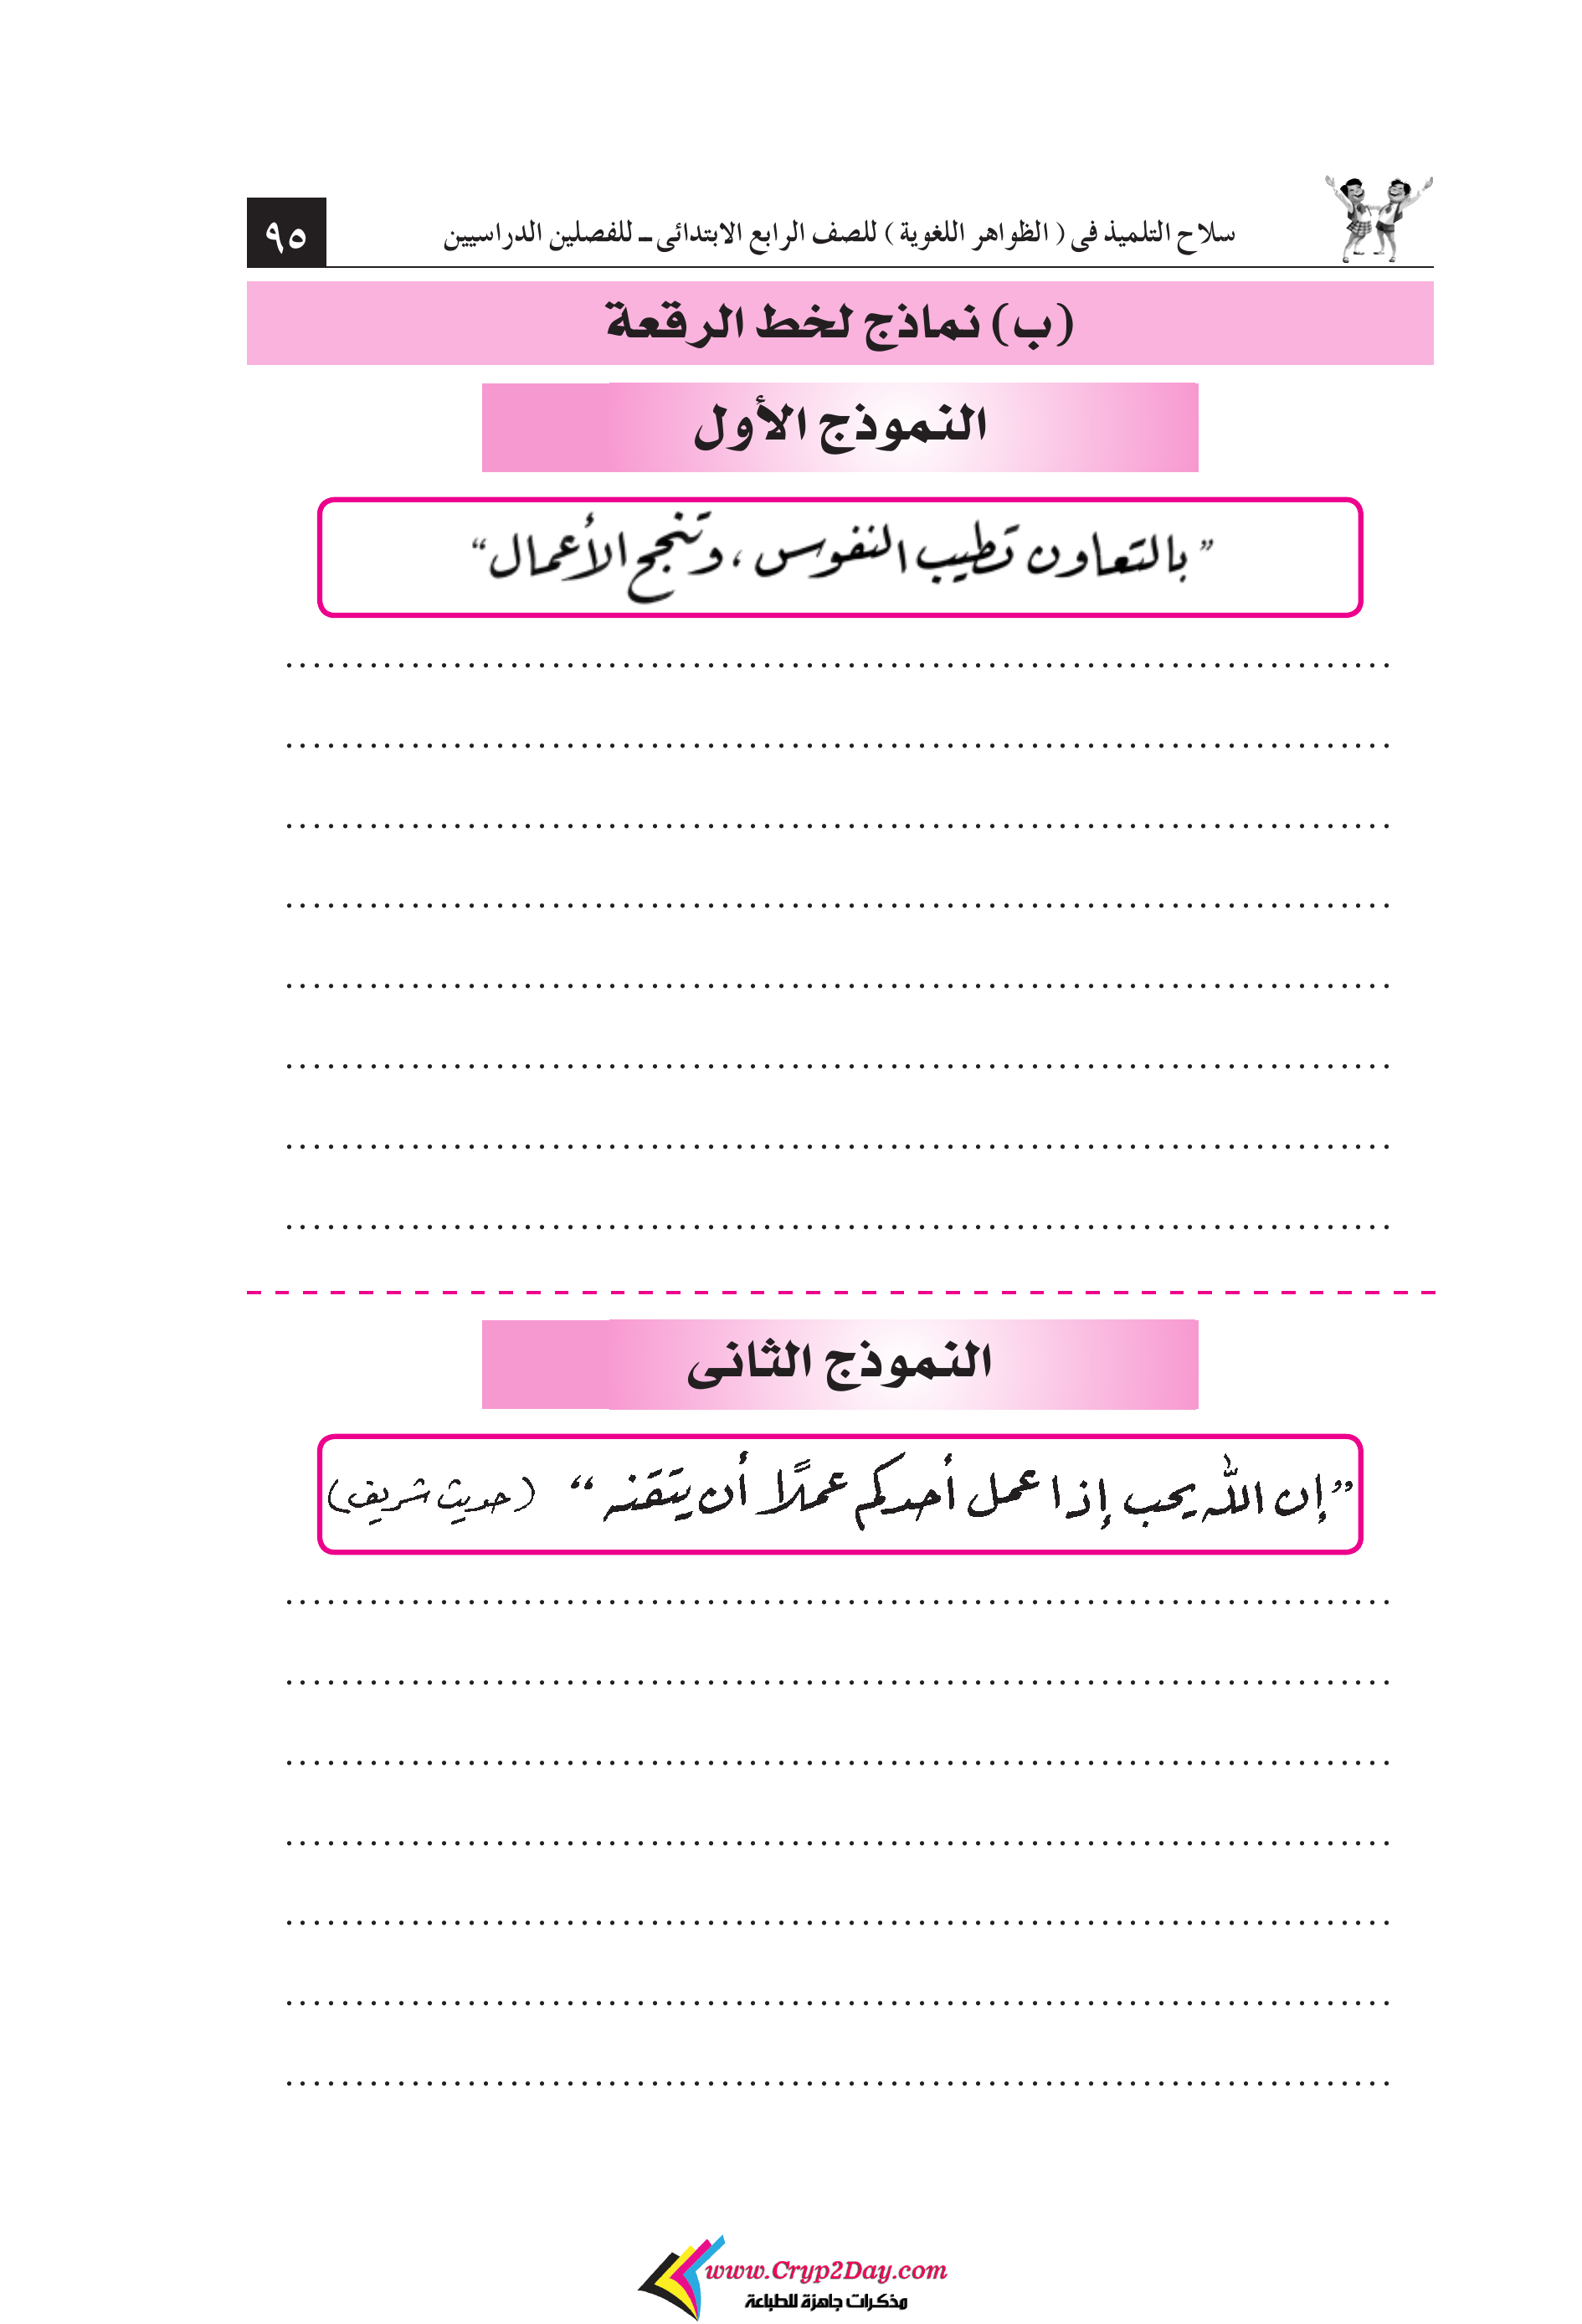 سلاح التلميذ فى ( الظواهر اللغوية ) للصف الرابع الابتدائى ــ للفصلين الدراسيين
٩٥
(ب) نماذج لخط الرقعة
النموذج الأول
” بالتعاون تطيب النفوس ، وتنجح الأعمال “
النموذج الثانى
” إن الله يحب إذا عمل أحدكم عملًا أن يتقنه “ (حديث شريف)
www.Cryp2Day.com
مذكرات جاهزة للطباعة